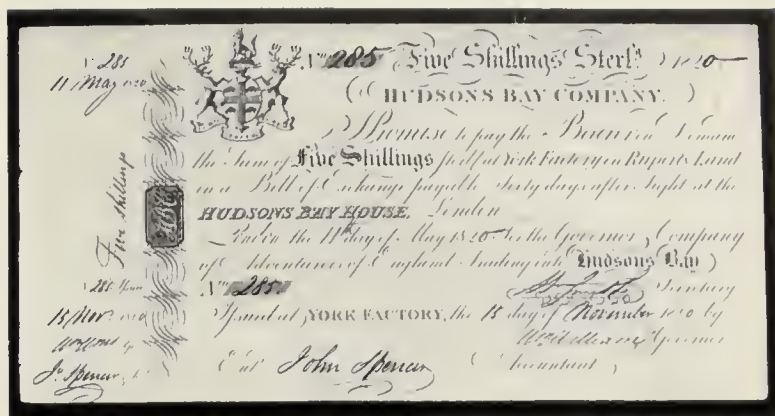 285
11 May 1820
Five Shillings
285
15 Nov.r 1820
Jn. Spencer
No. 285 Five Shillings Sterlg. 1820
HUDSONS BAY COMPANY.
I Promise to pay the Bearer on Demand
the Sum of Five Shillings Sterl at York Factory in Ruperts Land
in a Bill of Exchange payable Sixty days after Sight at the
HUDSONS BAY HOUSE, London
London the 11th day of May 1820 for the Governor, Company
of Adventurers of England Trading into Hudsons Bay
No. 285. Secretary
Issued at YORK FACTORY, the 15 day of November 1820 by
Governor
Ent. John Spencer Accountant